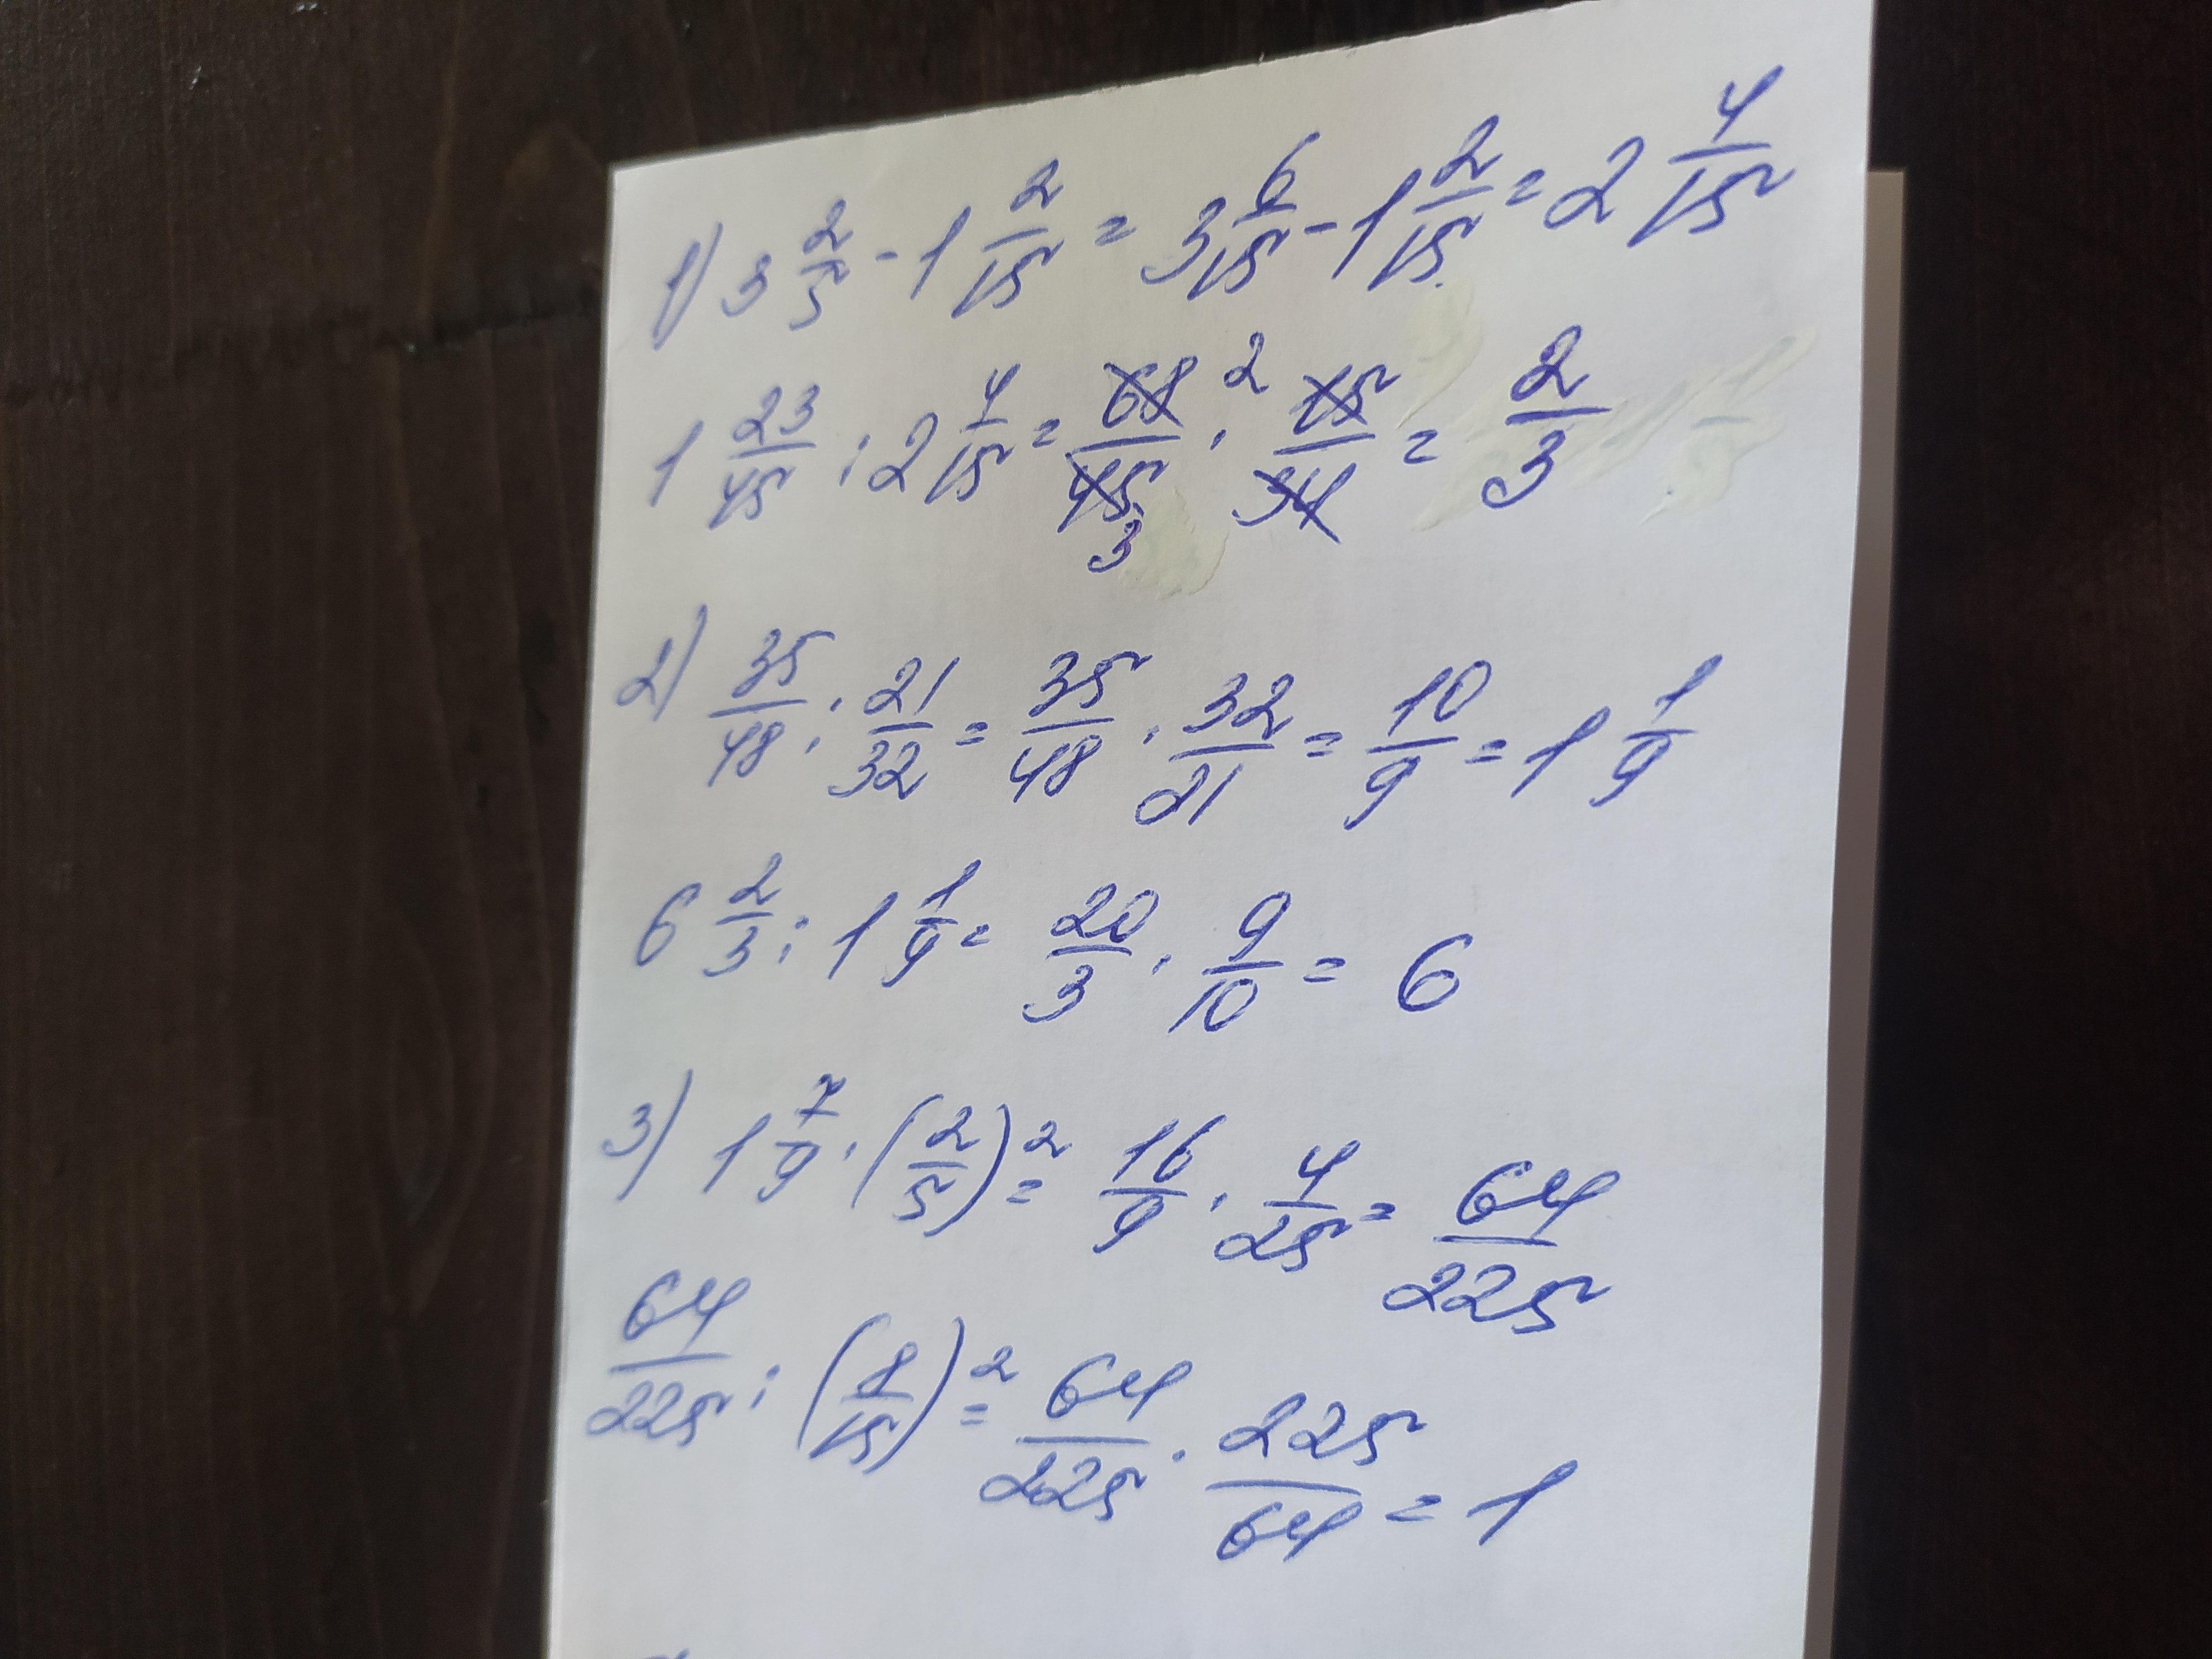 1) 3 2/5 - 1 2/15 = 3 6/15 - 1 2/15 = 2 4/15
1 23/45 : 2 4/15 = 68/45 2/3 · 15/34 = 2/3
2) 35/48 : 21/32 = 35/48 · 32/21 = 10/9 = 1 1/9
6 2/3 : 1 1/9 = 20/3 · 9/10 = 6
3) 1 7/9 · (2/5)² = 16/9 · 4/25 = 64/225
64/225 : (8/15)² = 64/225 · 225/64 = 1